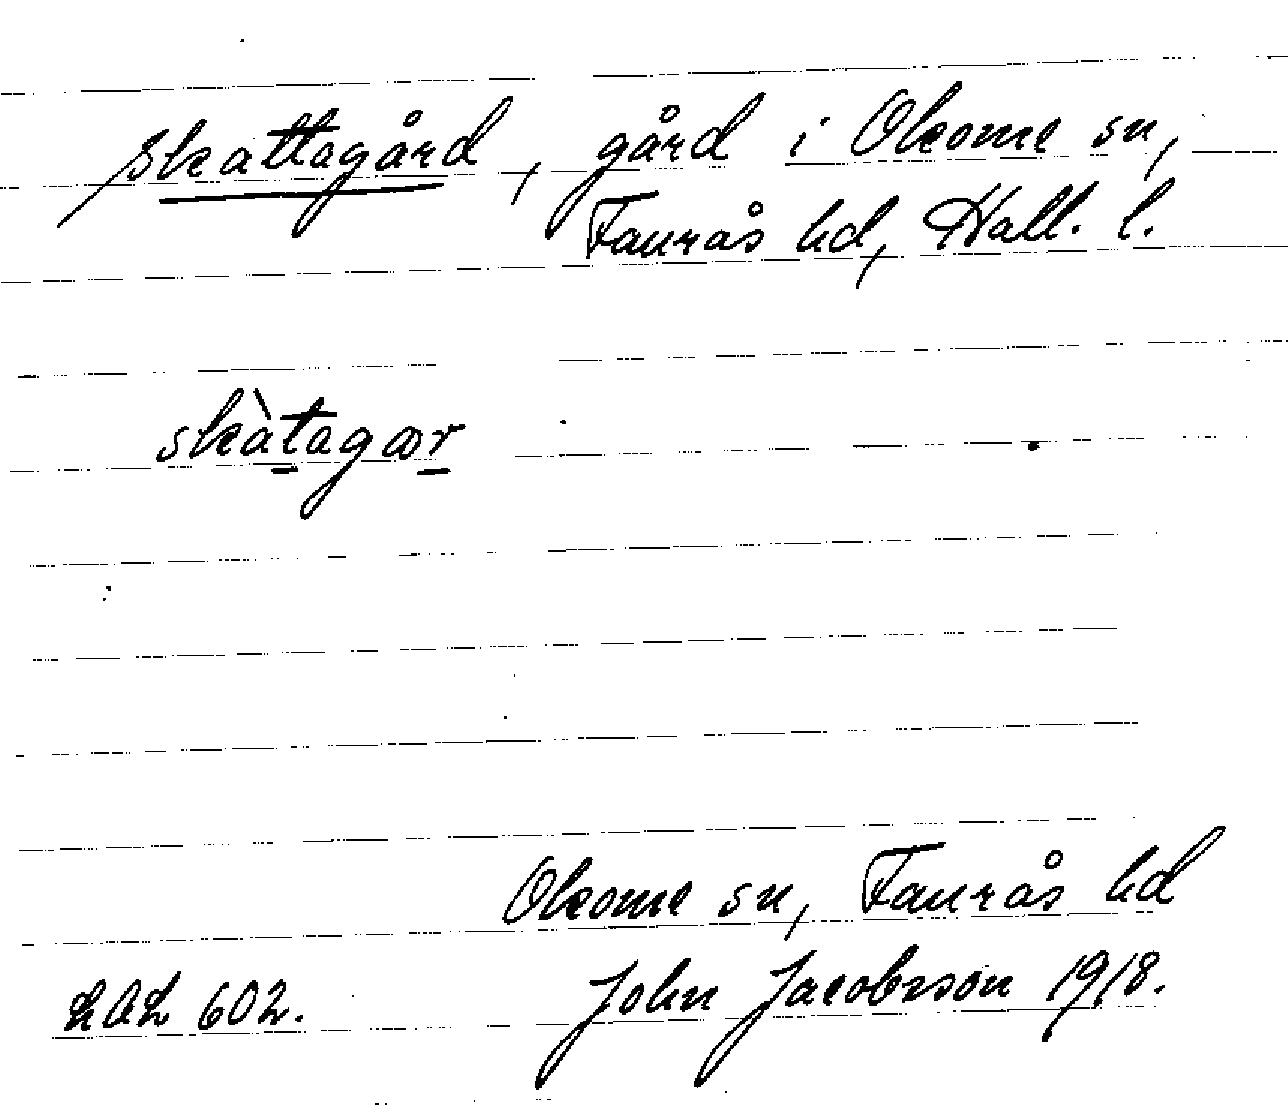 skattagård, gård i Okome sn,
Faurås hd, Hall. l.
skàtagær
Okome sn, Faurås hd
LAL 602. John Jacobsson 1918.